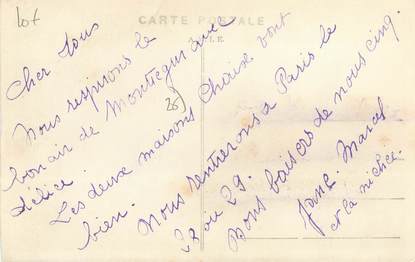 Lot
CARTE POSTALE
Cher tous
Nous respirons le
bon air de Montregun avec
délice.
Les deux maisons Chaise vont
bien.
Nous rentrerons à Paris le
28 ou 29.
Bons baisers de nous cinq.
Marcel
et la nichée.